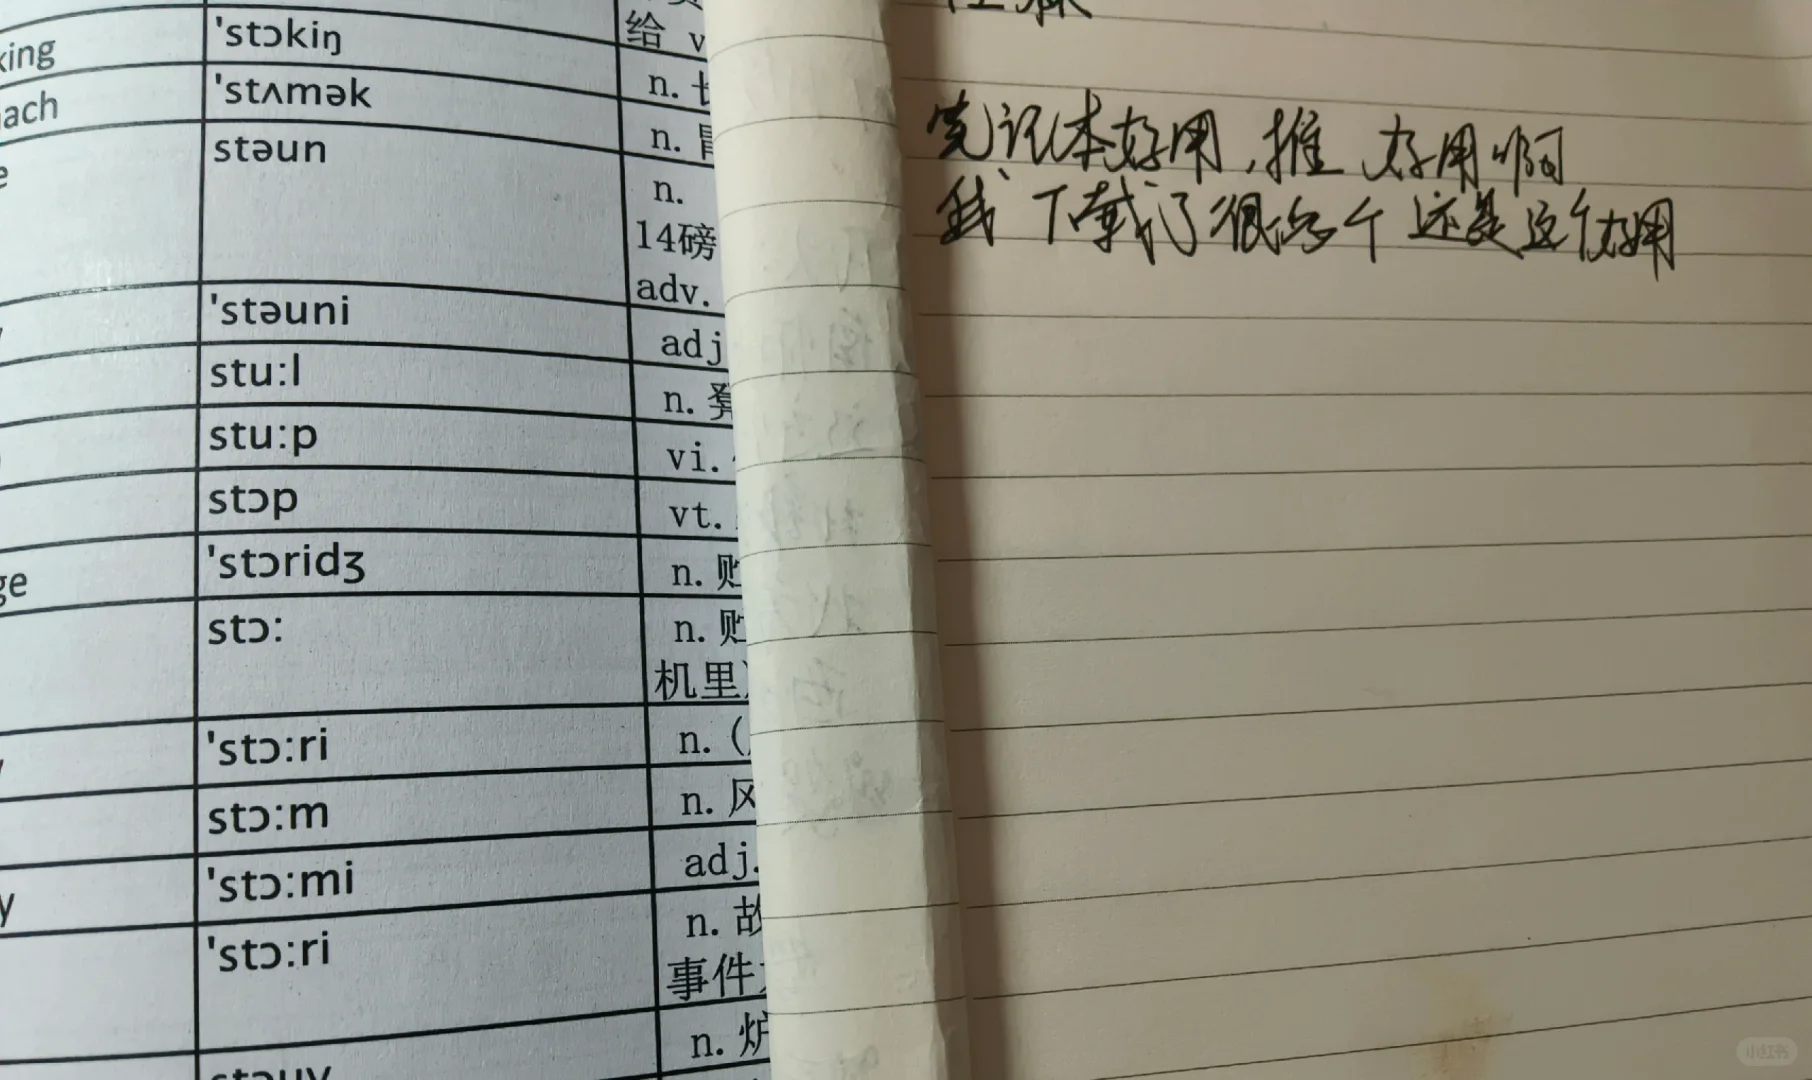 king
'stɔkiŋ
给 v
n.
ach
'stʌmək
n.
e
stəun
n.
14磅
adv.
'stəuni
adj
stu:l
n. 凳
stu:p
vi.
stɔp
vt.
ge
'stɔridʒ
n. 贮
stɔ:
n. 贮
机里
'stɔ:ri
n. (
stɔ:m
n. 风
y
'stɔ:mi
adj.
'stɔ:ri
n. 故
事件
n. 炉
stəuv
笔记本好用,推 好用啊
我下载了很多个 还是这个好用
小红书